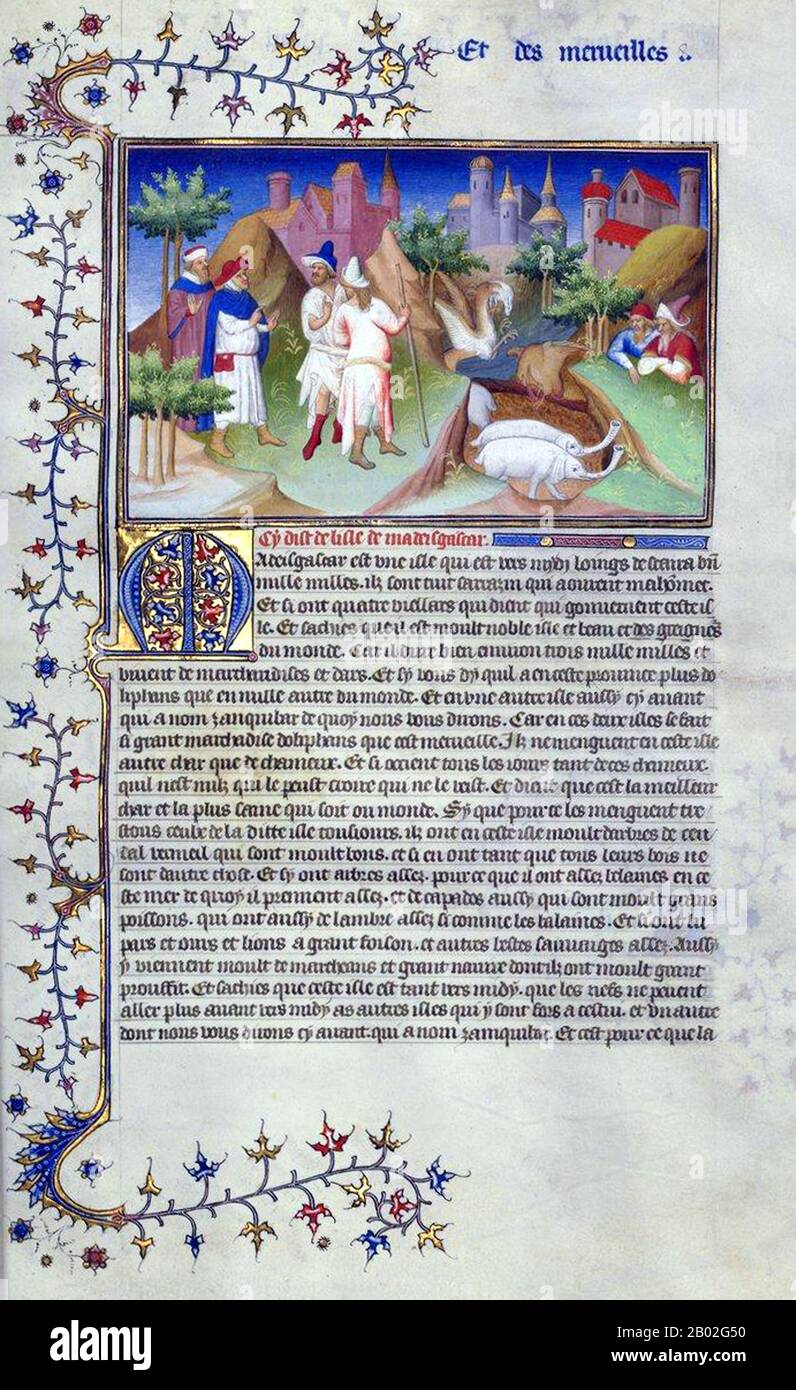 Et des merueilles
Cy dist de lisle de madeisgascar.
Madeisgascar est vne isle qui est vers mydi loings de scarra bñ
mille milles. ilz sont tuit sarrazin qui aourent mahomet.
Et si ont quatre viellars qui dient qui gouuernent ceste is
le. Et sachies que cest moult noble isle et beau et des greigneͬs
du monde. Car il dure bien enuiron trois mille milles et
viuent de marchandises et dars. Et sy vous dy quil a en ceste prouince plus do
liphans que en nulle autre du monde. Et en vne autre isle aussy cy auant
qui a nom zanquibar de quoy nous vous dirons. Car en ces deux isles se fait
si grant marchādise doliphans que cest merueille. Ilz ne menguent en ceste isle
autre char que de chameux. Et si occient tous les iours tant de ces chameux.
quil nest nulz qui le peust croire qui ne le veist. Et dient que cest la meilleur
char et la plus saine qui soit ou monde. Sy que pour ce les menguent tre
stous ceulx de la ditte isle tousiours. ilz ont en ceste isle moult darbres de cen
dal vermeil qui sont moult bons. et si en ont tant que tous leurs bois ne
sont dautre chose. Et sy ont ambre assez. pour ce que il ont assez balaines en ce
ste mer de quoy il prennent assez. et de capados aussy qui sont moult grans
poissons. qui ont aussy de lambre assez si comme les balaines. Et si ont lu
pars et ours et lions a grant foison. et autres bestes sauuages assez. Aussy
y viennent moult de marcheans et grant nauire dont ilz ont moult grant
prouffit. Et sachies que ceste isle est tant vers midy. que les nefs ne peuent
aller plus auant vers midy as autres isles qui y sont fors a cestui. et vn autre
dont nous vous dirons cy auant. qui a nom zamquibar. Et cest pour ce que la
alamy
alamy
alamy
Image ID: 2B02G50
www.alamy.com